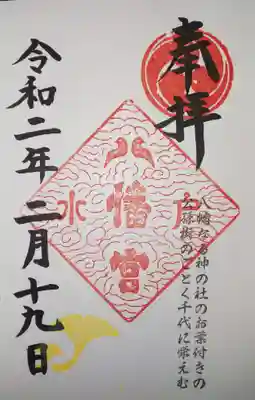 奉拝
八幡宮
水
八幡なる神の社のお葉付きの
公孫樹のごとく千代に栄えむ
令和二年二月十九日